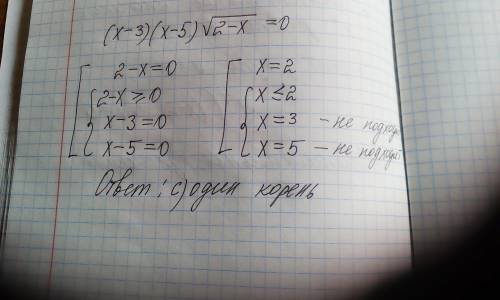 (x-3)(x-5)√(2-x) = 0
2-x=0
2-x≥0
x-3=0
x-5=0
x=2
x≤2
x=3 - не подход
x=5 - не подходит
Ответ: с) один корень